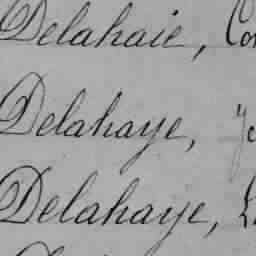 Delahaie,
Delahaye,
Delahaye,